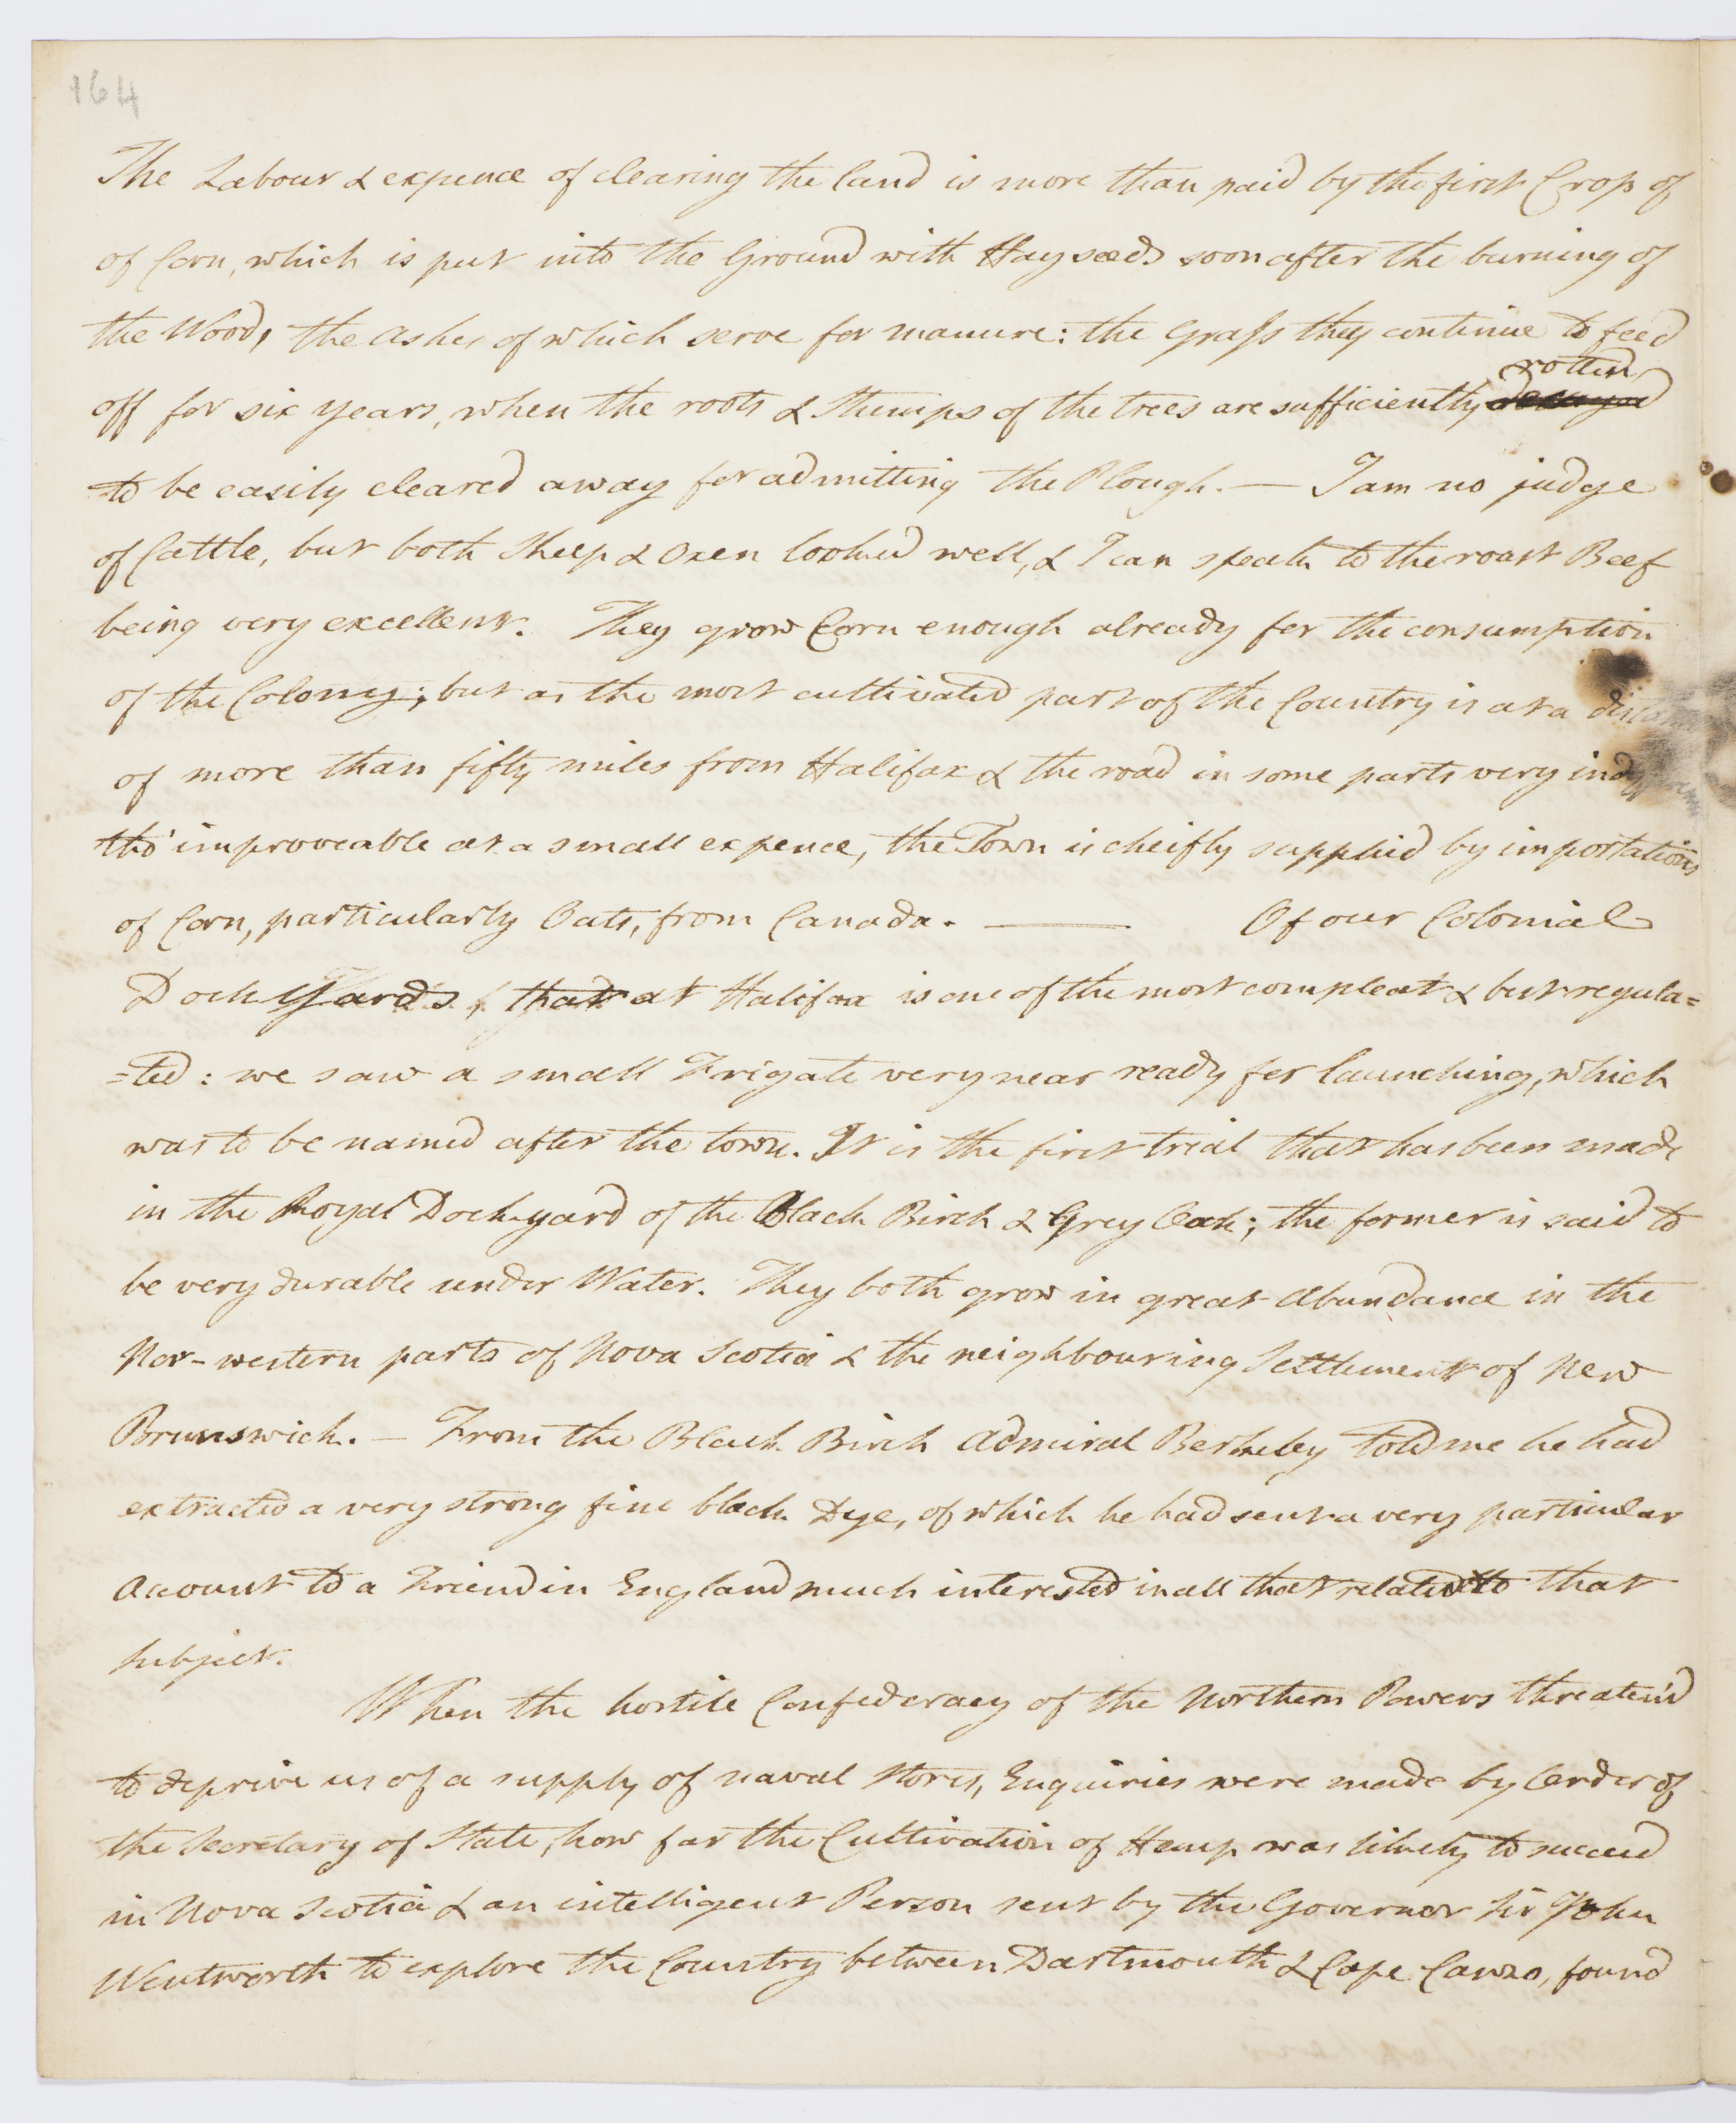 164
The Labour & expence of clearing the land is more than paid by the first Crop of
of Corn, which is put into the Ground with Hayseeds soon after the burning of
the Wood, the ashes of which serve for manure: the Grass they continue to feed
rotten
off for six years, when the roots & stumps of the trees are sufficiently decayed
to be easily cleared away for admitting the Plough. — I am no judge
of Cattle, but both Sheep & Oxen looked well, & I can speak to the roast Beef
being very excellent. They grow Corn enough already for the consumption
of the Colony; but as the most cultivated part of the Country is at a
of more than fifty miles from Halifax & the road in some parts very
tho' improveable at a small expence, the Town is cheifly supplied by importations
of Corn, particularly Oats, from Canada. — Of our Colonial
Dock Yards, that at Halifax is one of the most compleat & best regula=
=ted: we saw a small Frigate very near ready for launching, which
was to be named after the town. It is the first trial that has been made
in the Royal Dock-yard of the Black Birch & Grey Oak; the former is said to
be very durable under Water. They both grow in great abundance in the
Nor-western parts of Nova Scotia & the neighbouring Settlement of New
Brunswick. — From the Black Birch Admiral Berkeley told me he had
extracted a very strong fine black Dye, of which he had sent a very particular
account to a Friend in England much interested in all that related to that
subject.
When the hostile Confederacy of the Northern Powers threaten'd
to deprive us of a supply of naval stores, Enquiries were made by Order of
the Secretary of State, how far the Cultivation of Hemp was likely to succeed
in Nova Scotia & an intelligent Person sent by the Governor Sir John
Wentworth to explore the Country between Dartmouth & Cape Canso, found